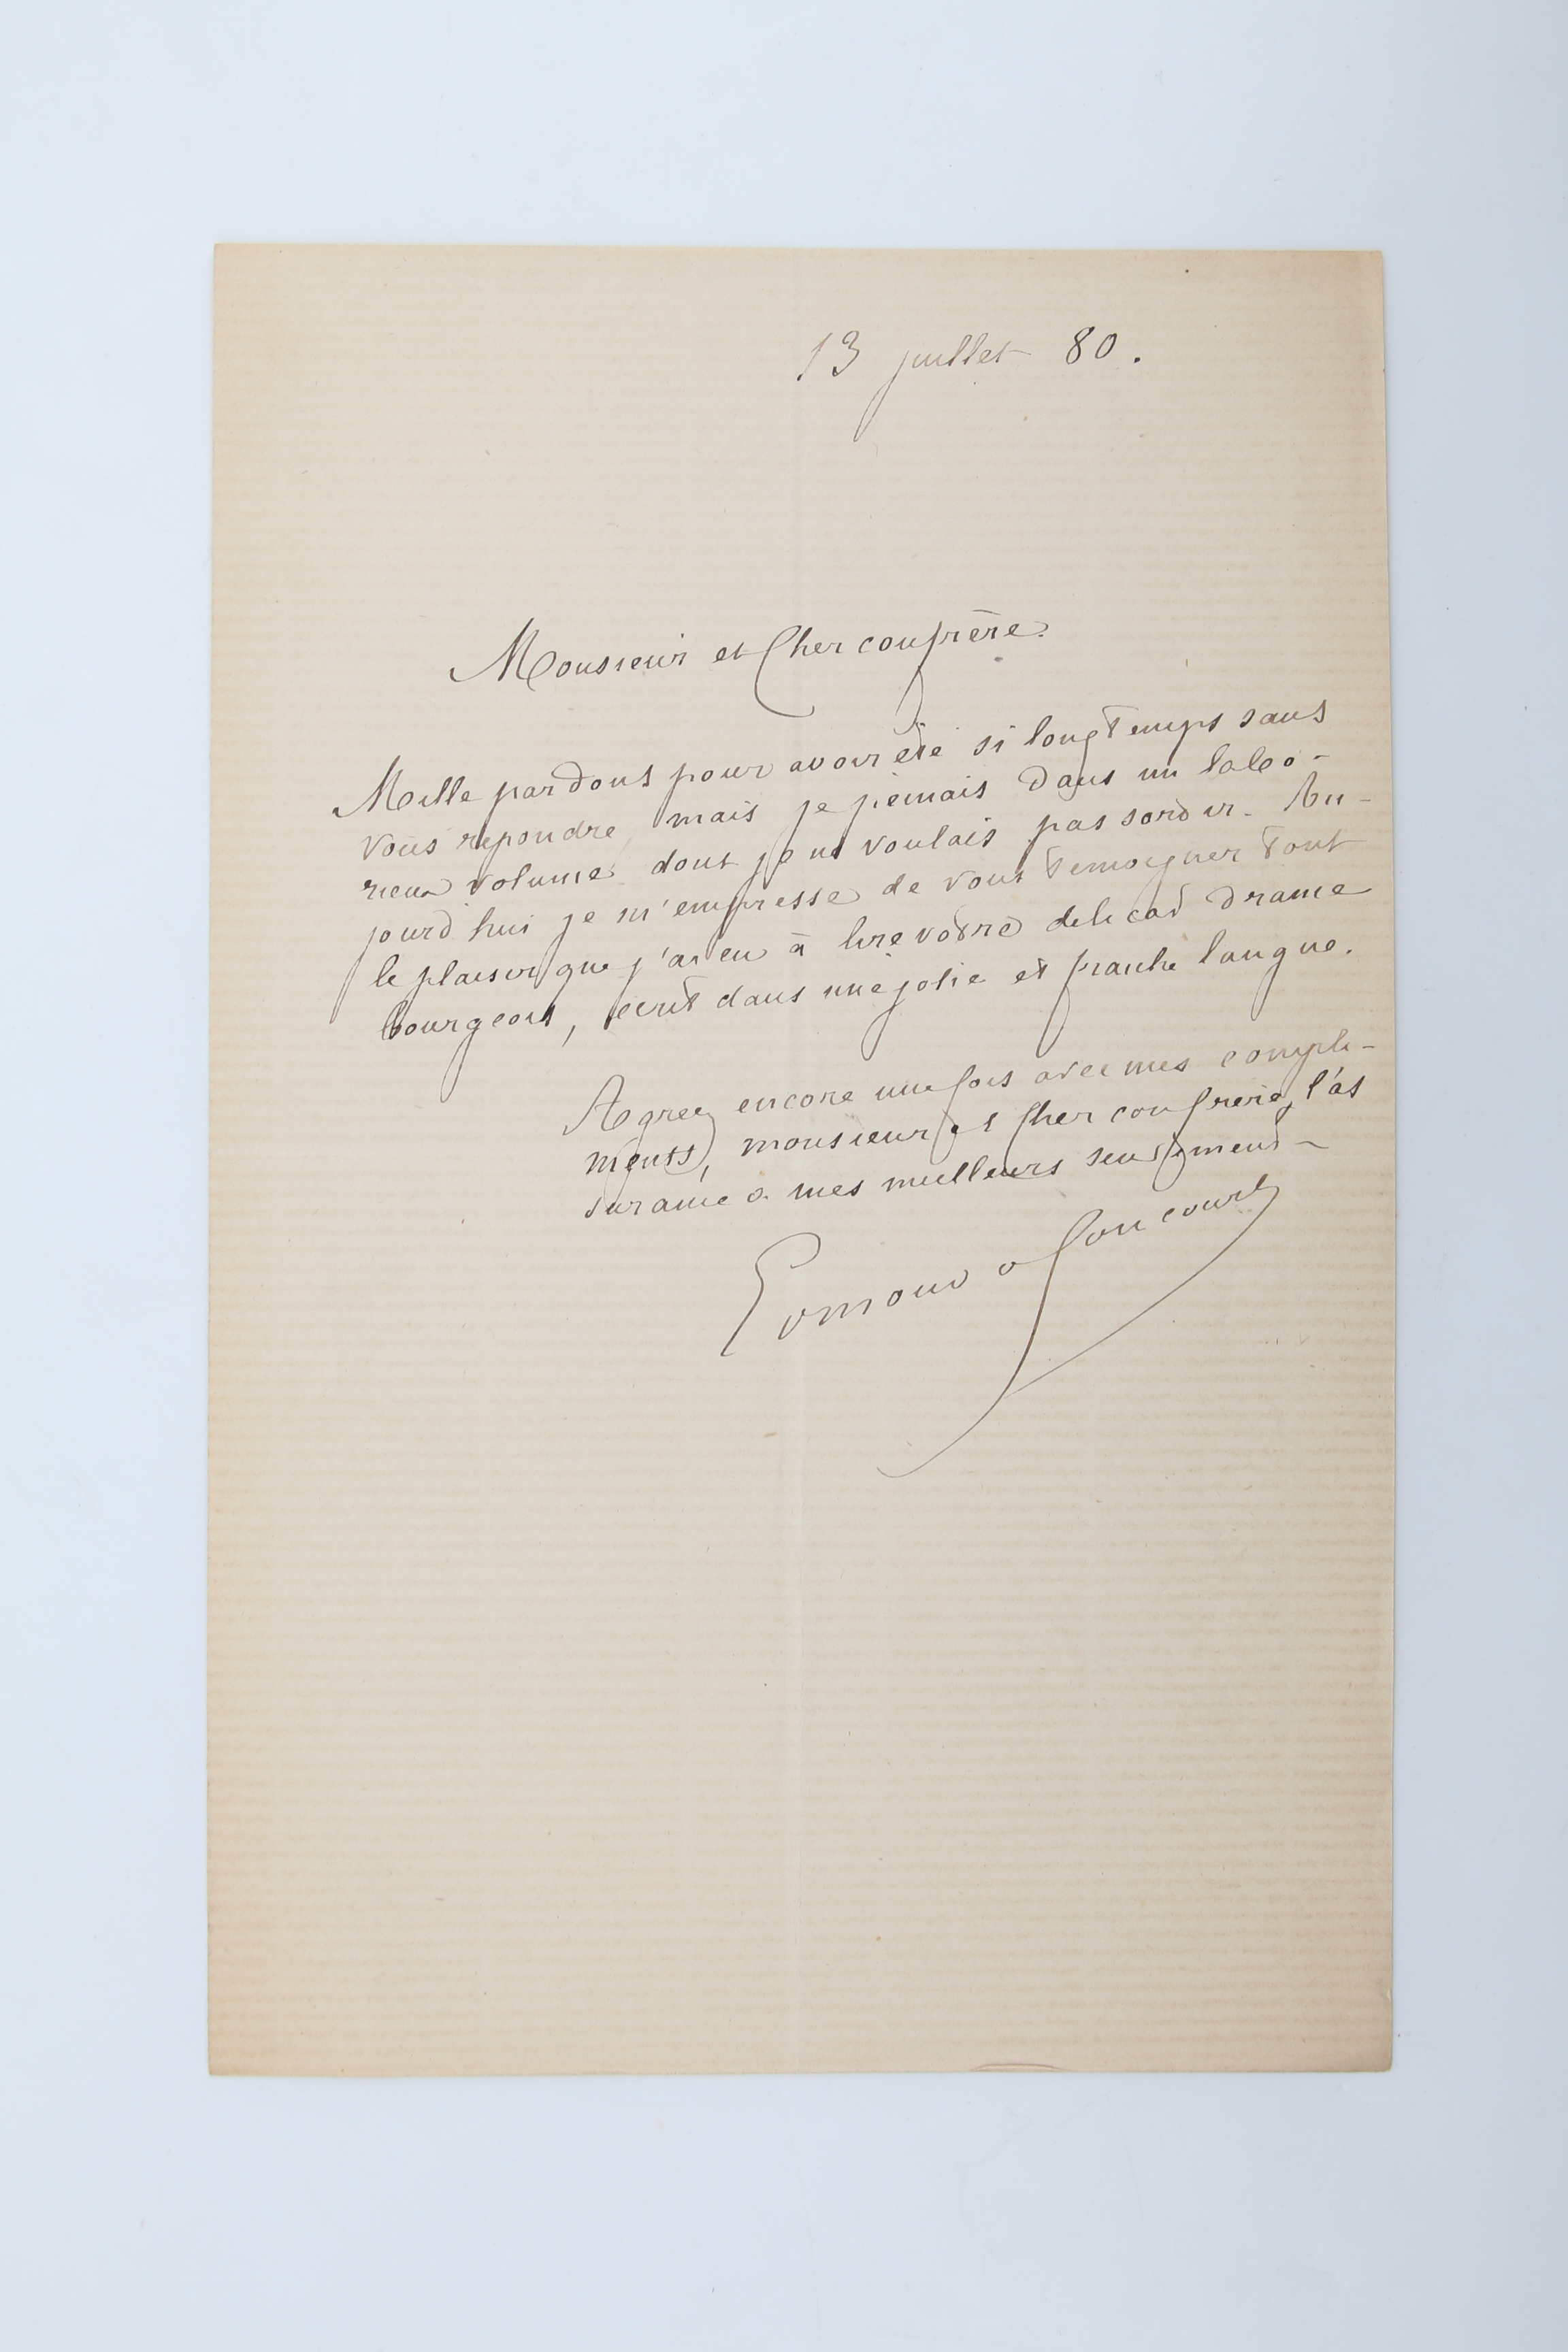 13 juillet 80.
Monsieur et Cher confrère.
Mille pardons pour avoir été si longtemps sans
vous repondre, mais je dans un labo-
rieux volume dont je ne voulais pas sortir. Au-
jourd'hui je m'empresse de vous temoigner tout
le plaisir que j'ai eu à lire votre delicat drame
bourgeois, ecrit dans une jolie et franche langue.
Agreez encore une fois avec mes compli-
ments, monsieur et cher confrere, l'as
surance de mes meilleurs sentiments
Edmond de Goncourt